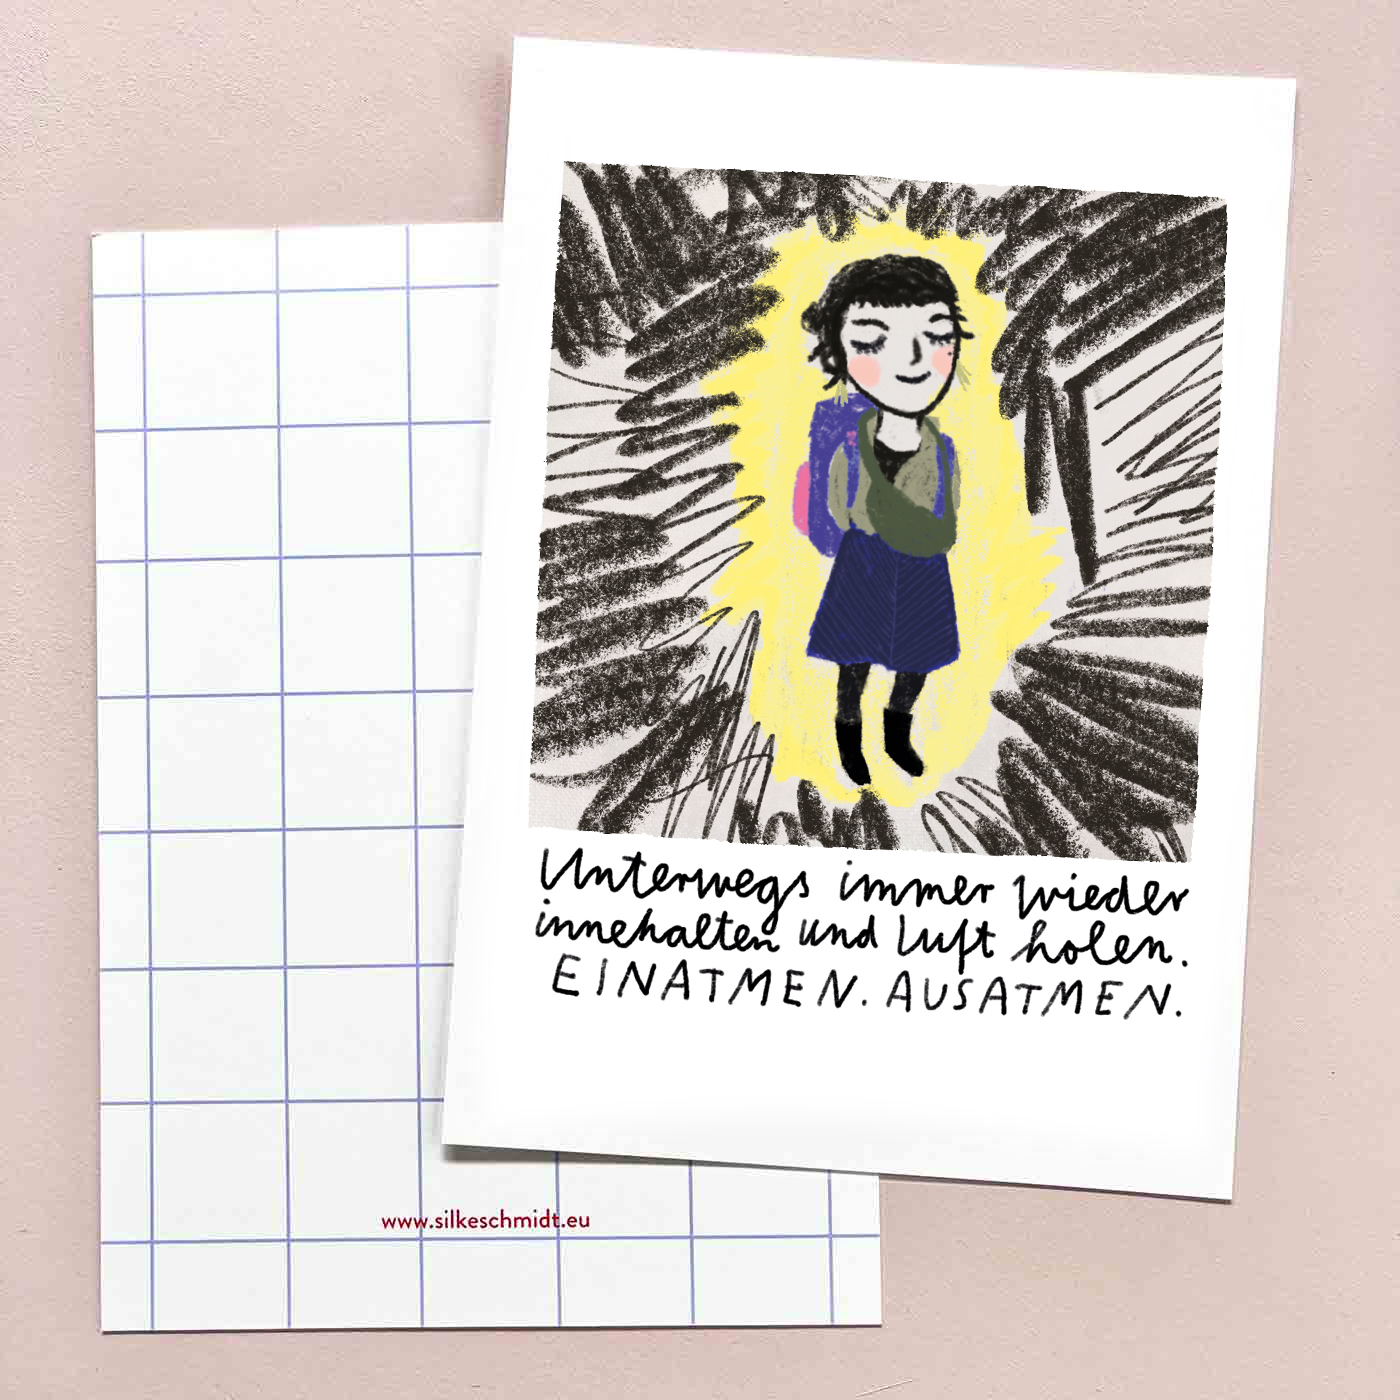 Unterwegs immer wieder
innehalten und Luft holen.
EINATMEN. AUSATMEN.
www.silkeschmidt.eu